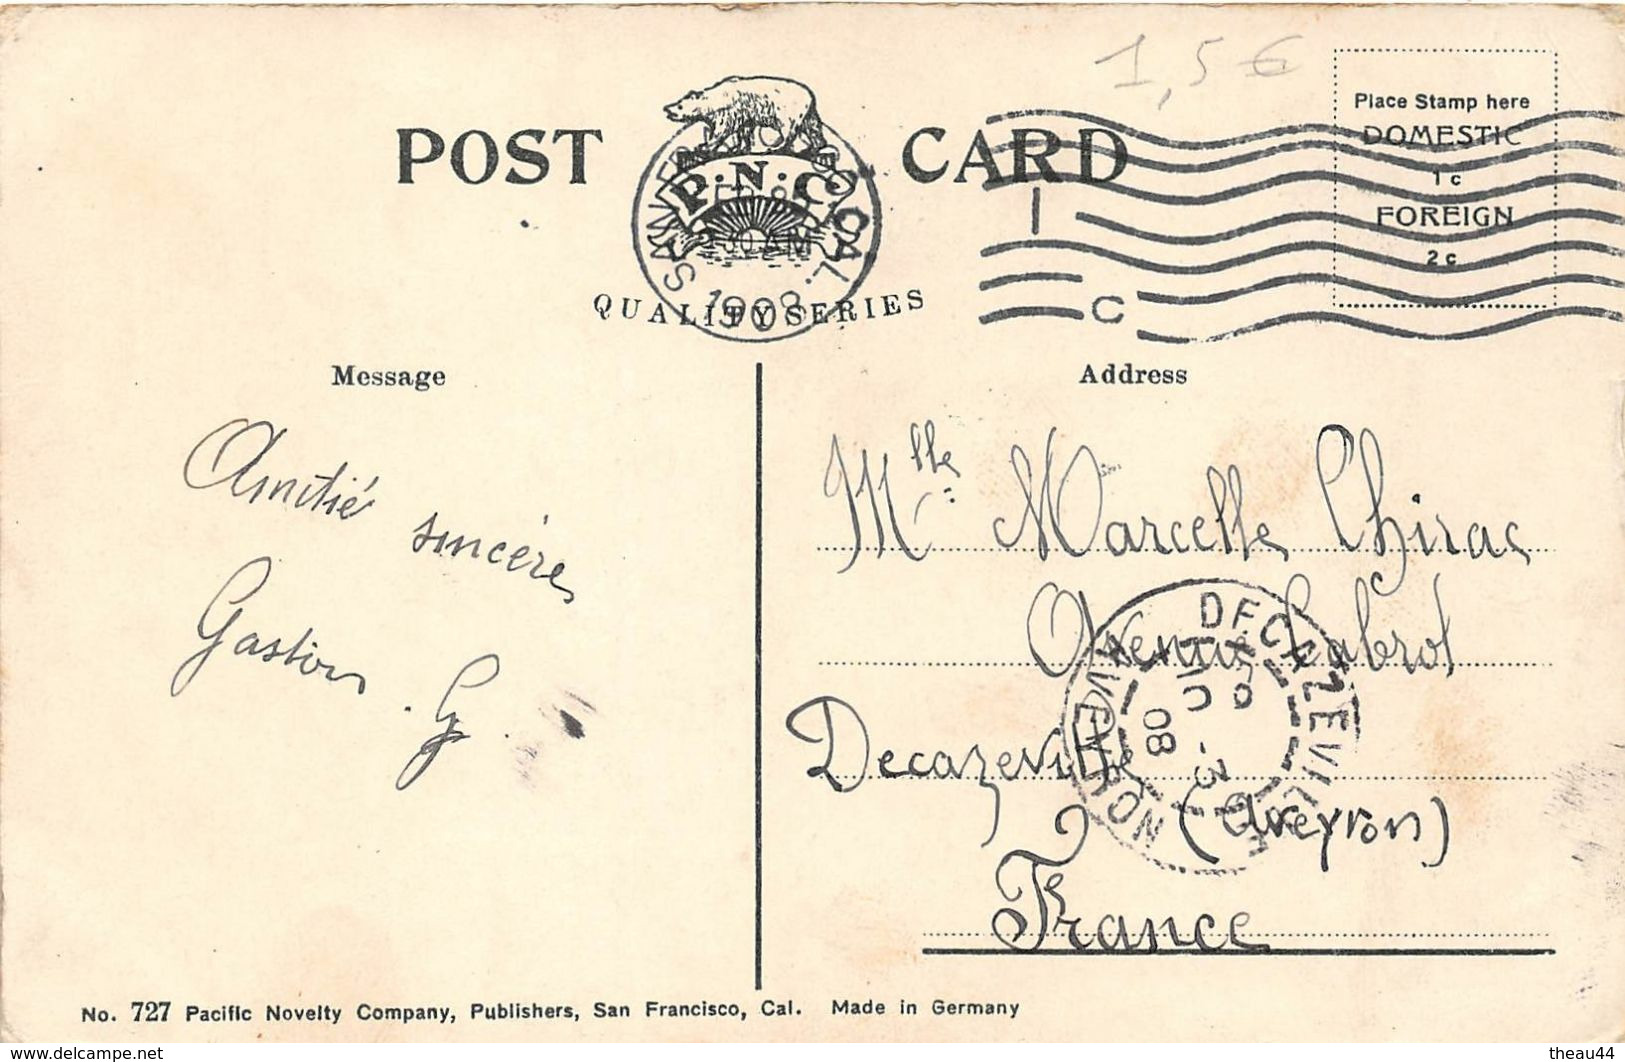 1,5 €
POST CARD
P.N.C.
SAN FRANCISCO CAL.
30 AM
1908
QUALITY SERIES
Place Stamp here
DOMESTIC
1 c
FOREIGN
2 c
1
C
Message
Address
Amitié
sincère
Gaston
G
Mlle Marcelle Chirac
Avenue Cabrol
Decazeville
(Aveyron)
France
DECAZEVILLE
AVEYRON
-3
08
No. 727 Pacific Novelty Company, Publishers, San Francisco, Cal. Made in Germany
www.delcampe.net
theau44